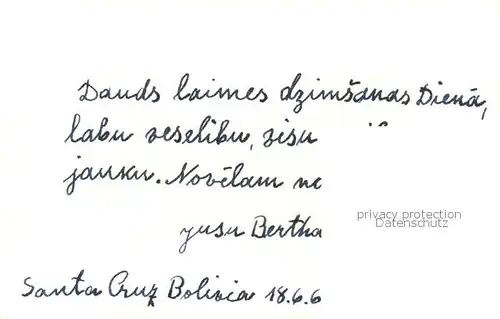 Dauds laimes dzimšanas Dienā,
labu veselibu, visu
jauku. Novēlam nc
jusu Bertha
privacy protection
Datenschutz
Santa Cruz Bolivia 18.6.6